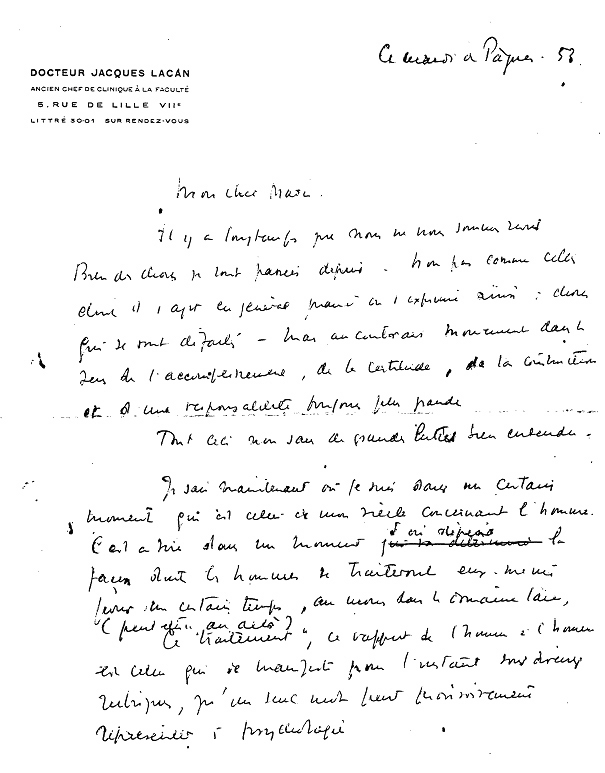 Ce mardi de Pâques. 53.
DOCTEUR JACQUES LACAN
ANCIEN CHEF DE CLINIQUE À LA FACULTÉ
5, RUE DE LILLE VIIE
LITTRÉ 30-01 SUR RENDEZ-VOUS
Mon cher Marc.
Il y a longtemps que nous ne nous sommes
Bien des choses se sont passées depuis. Non pas comme celles
dont il s'agit en général quand on s'exprime ainsi : choses
qui se sont défaites – mais au contraire mouvement dans le
sens de l'accomplissement, de la certitude, de la construction
et d'une responsabilité toujours plus grande
Tout ceci non sans de grandes luttes bien entendu.
Je sais maintenant où je suis dans un certain
moment qui est celui de mon siècle concernant l'homme.
C'est à dire dans un moment d'où dépend la
façon dont les hommes se traiteront eux-mêmes
pour un certain temps, au moins dans le domaine laïc,
(peut-être au delà ?)
"Ce traitement", ce rapport de l'homme à l'homme
est celui qui se manifeste pour l'instant sous diverses
rubriques, qu'un seul mot peut provisoirement
représenter : psychologie